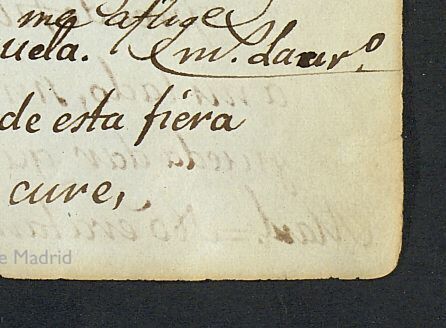 me aflige
uela. Em. Laur.º
de esta fiera
cure,
e Madrid